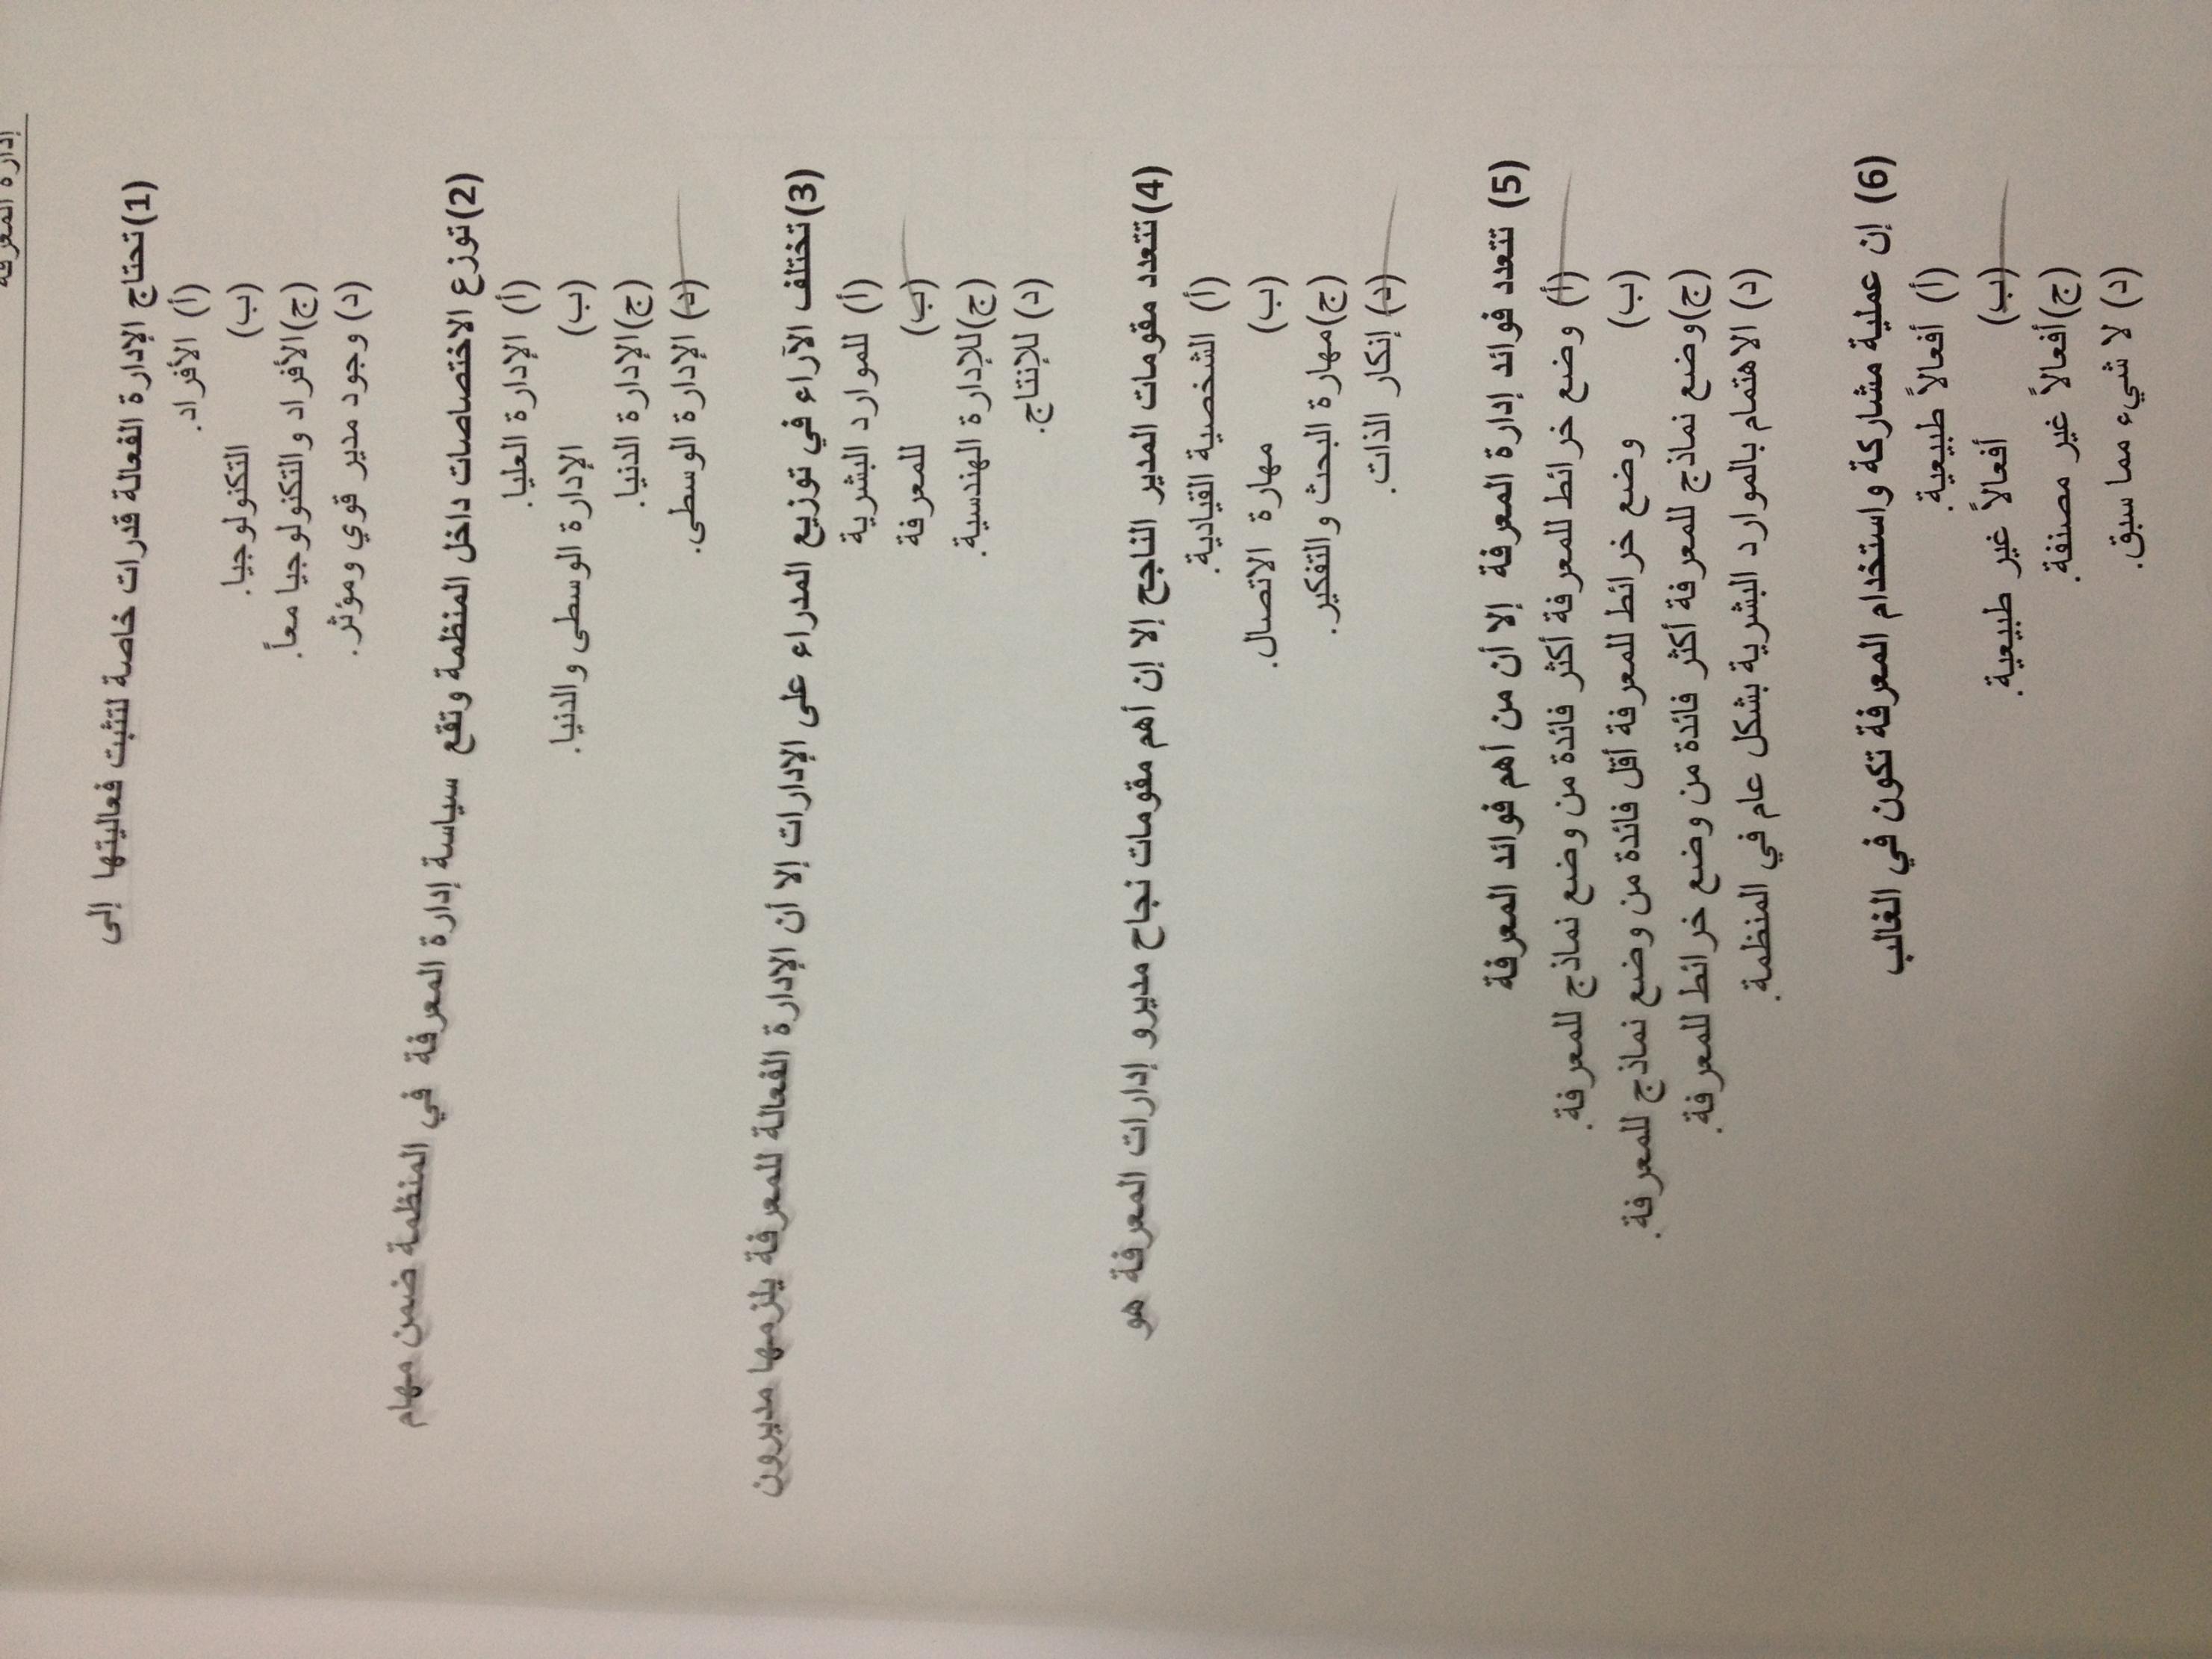 إدارة المعرفة
(1) تحتاج الإدارة الفعالة قدرات خاصة لتثبت فعاليتها إلى
(أ) الأفراد.
(ب) التكنولوجيا.
(ج) الأفراد والتكنولوجيا معاً.
(د) وجود مدير قوي ومؤثر.
(2) توزع الاختصاصات داخل المنظمة وتقع سياسة إدارة المعرفة في المنظمة ضمن مهام
(أ) الإدارة العليا.
(ب) الإدارة الوسطى والدنيا.
(ج) الإدارة الدنيا.
(د) الإدارة الوسطى.
(3) تختلف الآراء في توزيع المدراء على الإدارات إلا أن الإدارة الفعالة للمعرفة يلزمها مديرون
(أ) للموارد البشرية
(ب) للمعرفة
(ج) للإدارة الهندسية.
(د) للإنتاج.
(4) تتعدد مقومات المدير الناجح إلا إن أهم مقومات نجاح مديرو إدارات المعرفة هو
(أ) الشخصية القيادية.
(ب) مهارة الاتصال.
(ج) مهارة البحث والتفكير.
(د) إنكار الذات.
(5) تتعدد فوائد إدارة المعرفة إلا أن من أهم فوائد المعرفة
(أ) وضع خرائط للمعرفة أكثر فائدة من وضع نماذج للمعرفة.
(ب) وضع خرائط للمعرفة أقل فائدة من وضع نماذج للمعرفة.
(ج) وضع نماذج للمعرفة أكثر فائدة من وضع خرائط للمعرفة.
(د) الاهتمام بالموارد البشرية بشكل عام في المنظمة.
(6) إن عملية مشاركة واستخدام المعرفة تكون في الغالب
(أ) أفعالاً طبيعية.
(ب) أفعالاً غير طبيعية.
(ج) أفعالاً غير مصنفة.
(د) لا شيء مما سبق.